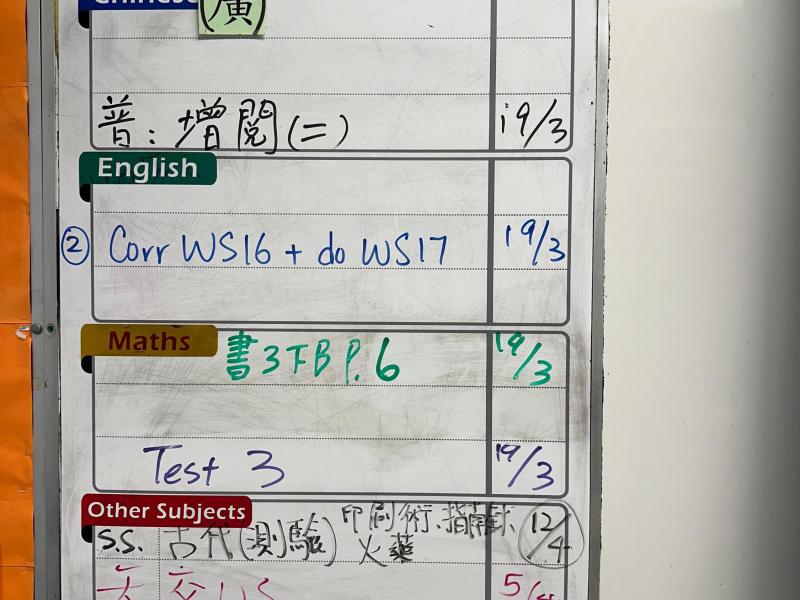 Chinese (廣)
普：增閱(二) 19/3
English
② Corr WS16 + do WS17 19/3
Maths
書3下B P.6 19/3
Test 3 19/3
Other Subjects
S.S. 古代(測驗) 印刷術、指南針、火藥 12/4
WS 5/4